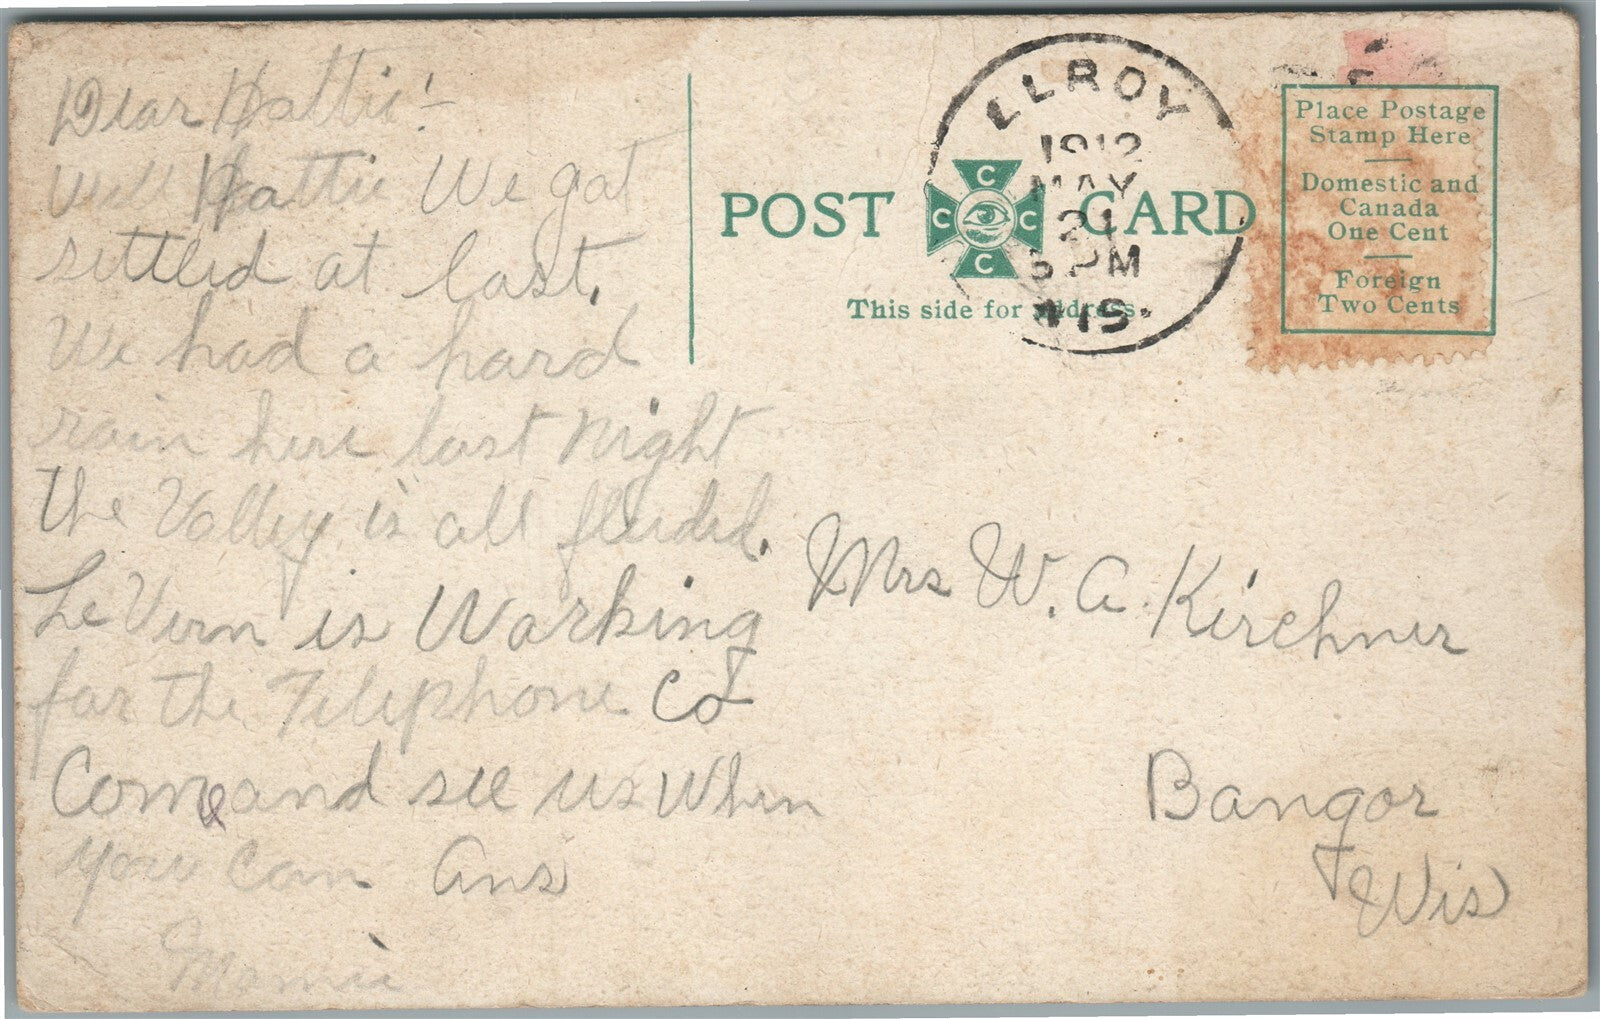 Dear Hattie:-
Well Hattie We got
settled at last.
We had a hard
rain here last Night
the Valley is all fluded.
Le Vern is Working
for the Telephone Co
Come and see us When
you can Ans
Mamie
POST CARD
C
C C
C
This side for address.
ELROY
1912
MAY
21
PM
WIS.
Place Postage
Stamp Here
Domestic and
Canada
One Cent
Foreign
Two Cents
Mrs W. A. Kirchner
Bangor
Wis